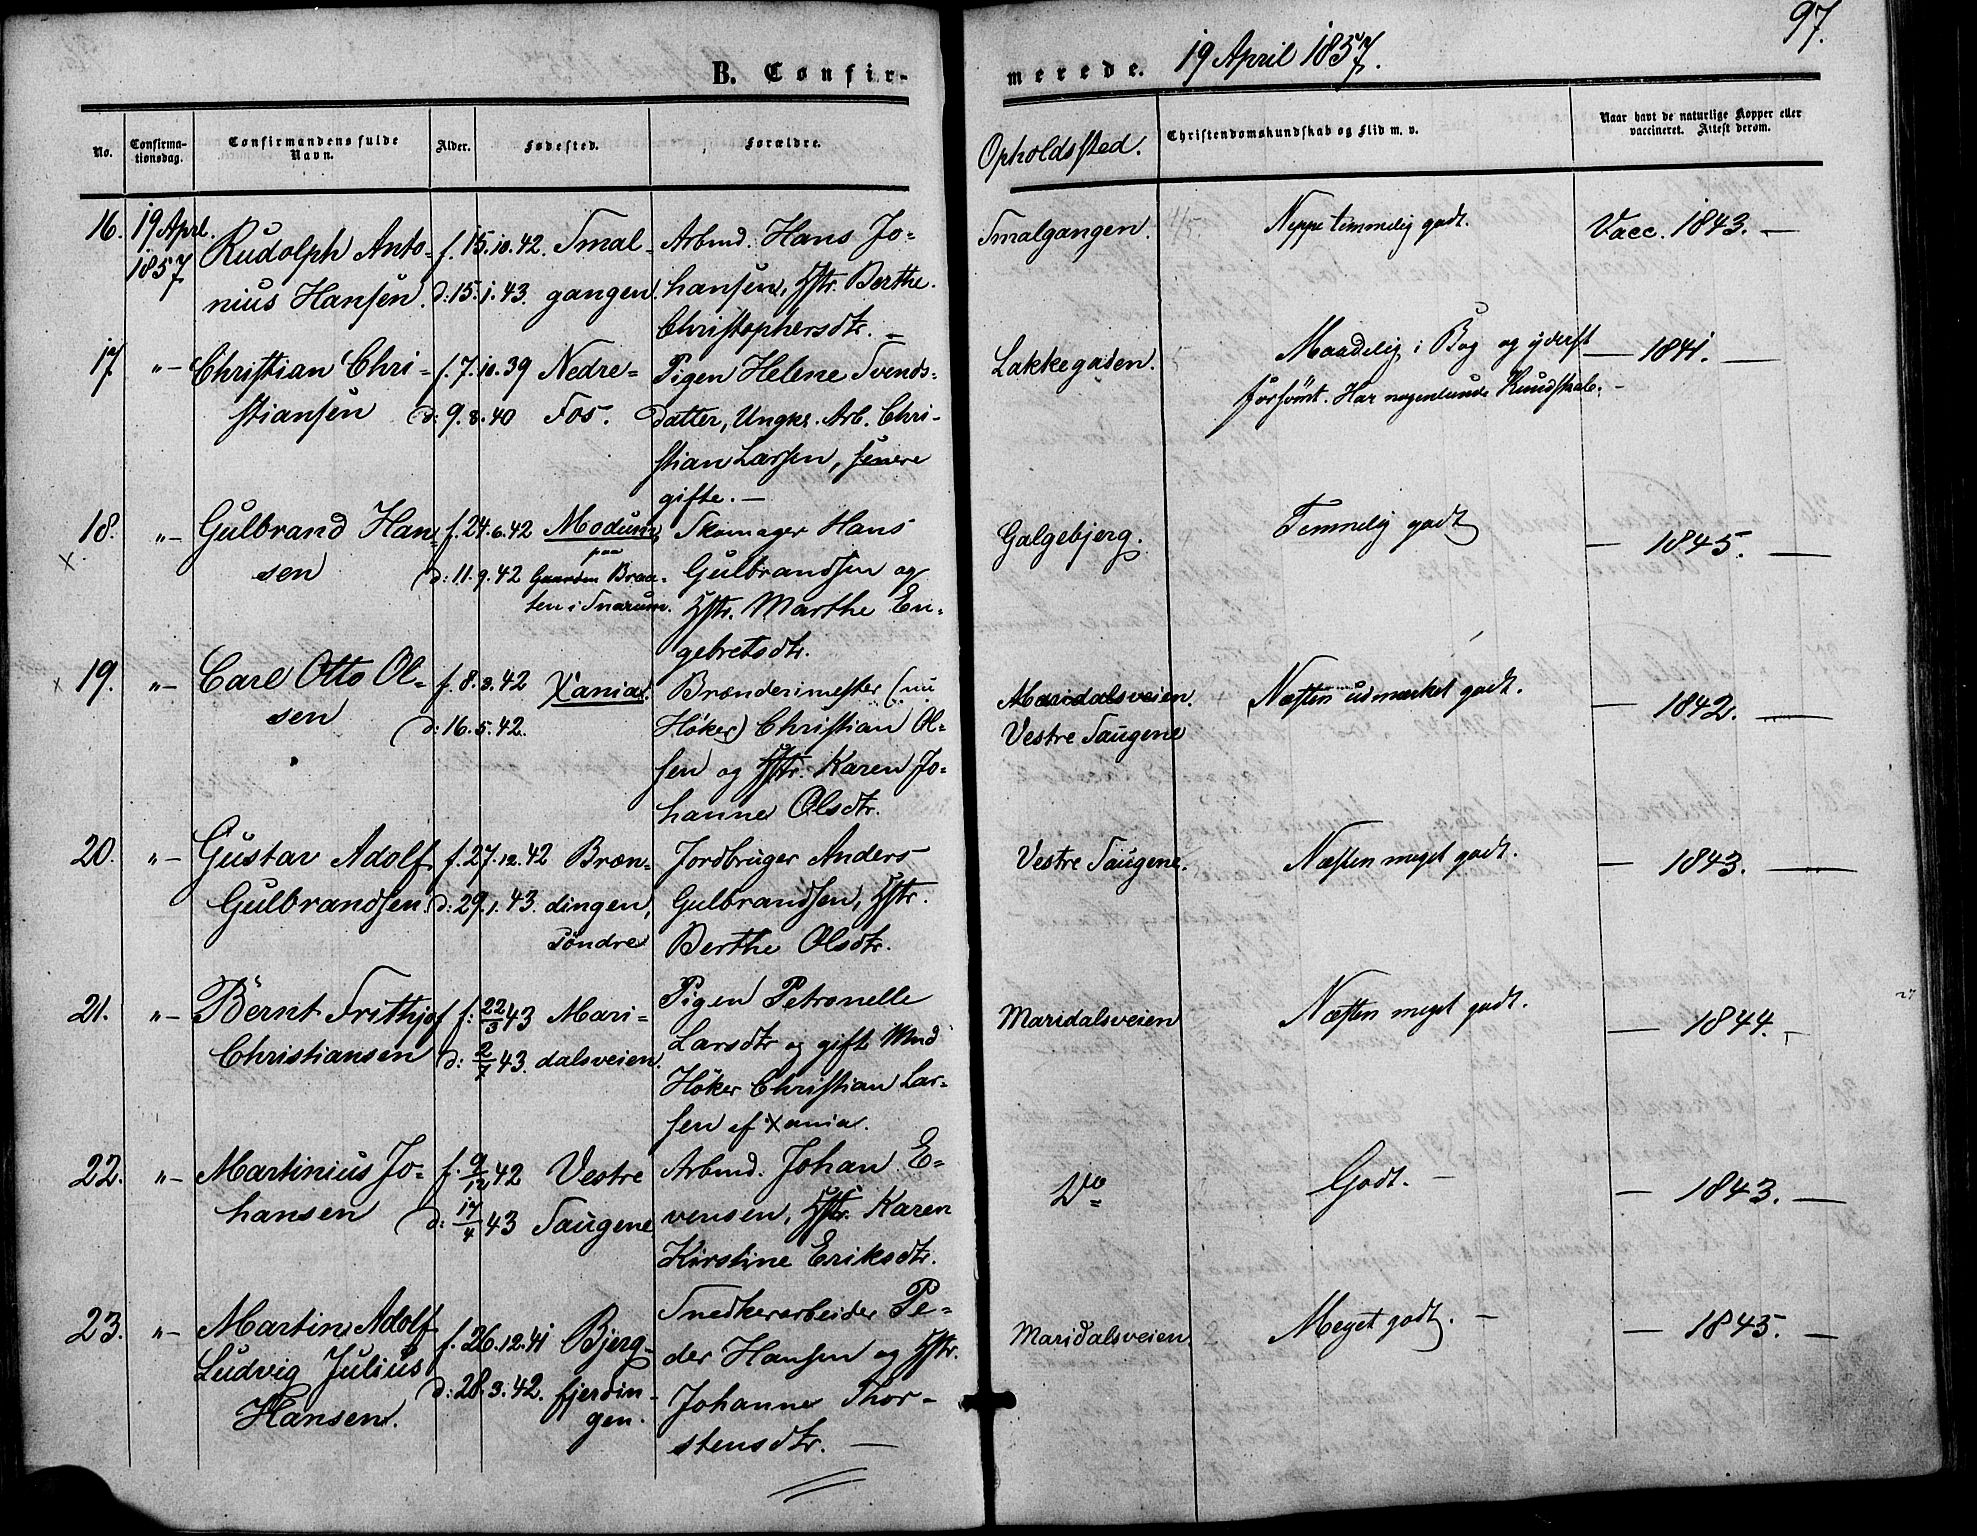 97.
B. Confir-
merede. 19 April 1857.
No.
Confirma-
tionsdag.
Confirmandens fulde
Navn.
Alder.
Fødested.
Forældre.
Opholdssted.
Christendomskundskab og Flid m. v.
Naar havt de naturlige Kopper eller
vaccineret. Attest derom.
16.
19 Apri.
1857
Rudolph Anto-
nius Hansen.
f. 15.10.42.
d: 15.1.43.
Smal-
gangen.
Arbmd. Hans Jo-
hansen, Hstr. Berthe
Christophersdtr. -
Smalgangen.
Neppe temmelig godt.
Vacc. 1843. -
17
"-
Christian Chri-
stiansen
f. 7.10.39
d: 9.8.40
Nedre-
Fos.
Pigen Helene Svends-
datter, Ungkr. Arb. Chri-
stian Larsen, senere
gifte. -
Lakkegaden.
Maadelig i Bog og yderst
forsömt. Har nogenlunde Kundskab. -
- 1841. -
18.
x
"-
Gulbrand Han-
sen
f. 24.6.42
d: 11.9.42
Modum,
paa
Gaarden Braa-
ten i Snarum.
Skomager Hans
Gulbrandsen og
Hstr. Marthe En-
gebretsdtr.
Galgebjerg.
Temmelig godt
- 1845. -
x 19.
"-
Carl Otto Ol-
sen
f. 8.3.42
d: 16.5.42.
Xania.
Brænderimester (nu
Höker) Christian Ol-
sen og Hstr. Karen Jo-
hanne Olsdtr.
Maridalsveien.
Vestre Saugene
Næsten udmærket godt.
- 1842. -
20.
"-
Gustav Adolf
Gulbrandsen.
f. 27.12.42
d: 29.1.43.
Bræn-
dingen,
söndre
Jordbruger Anders
Gulbrandsen, Hstr.
Berthe Olsdtr.
Vestre Saugene.
Næsten meget godt.
- 1843. -
21.
"-
Bernt Frithjof
Christiansen
f: 22/3 43
d: 2/7 43.
Mari-
dalsveien.
Pigen Petronelle
Larsdtr og gift Mnd
Höker Christian Lar-
sen af Xania.
Maridalsveien
Næsten meget godt.
- 1844. -
22.
"-
Martinius Jo-
hansen
f. 9/12 42
d: 17/4 43
Vestre
Saugene
Arbmd. Johan E-
vensen, Hstr. Karen
Kirstine Eriksdtr.
Do
Godt. -
- 1843. -
23.
"-
Martin Adolf
Ludvig Julius
Hansen.
f. 26.12.41
d: 28.3.42.
Bjerg-
fjerdin-
gen.
Snedkerarbeider Pe-
der Hansen og Hstr.
Johanne Thor-
stensdtr. -
Maridalsveien.
Meget godt. -
- 1845. -